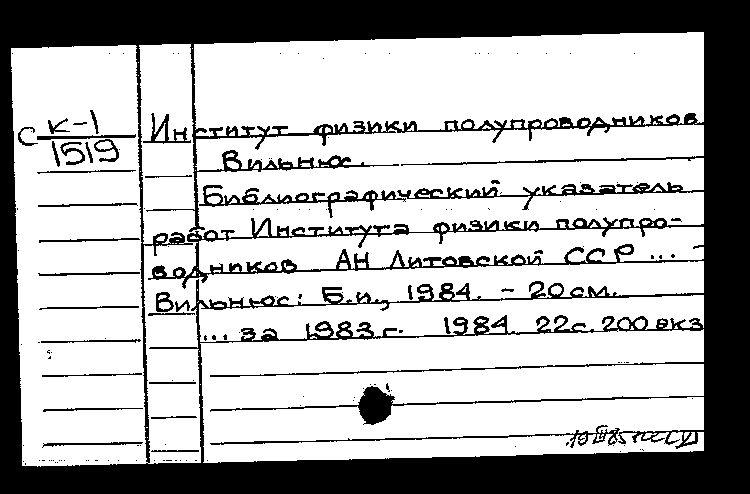 С К-1
1519
Институт физики полупроводников
Вильнюс.
Библиографический указатель
работ Института физики полупро-
водников АН Литовской ССР ... -
Вильнюс: Б.и., 1984. - 20 см.
... за 1983 г. 1984. 22 с. 200 экз